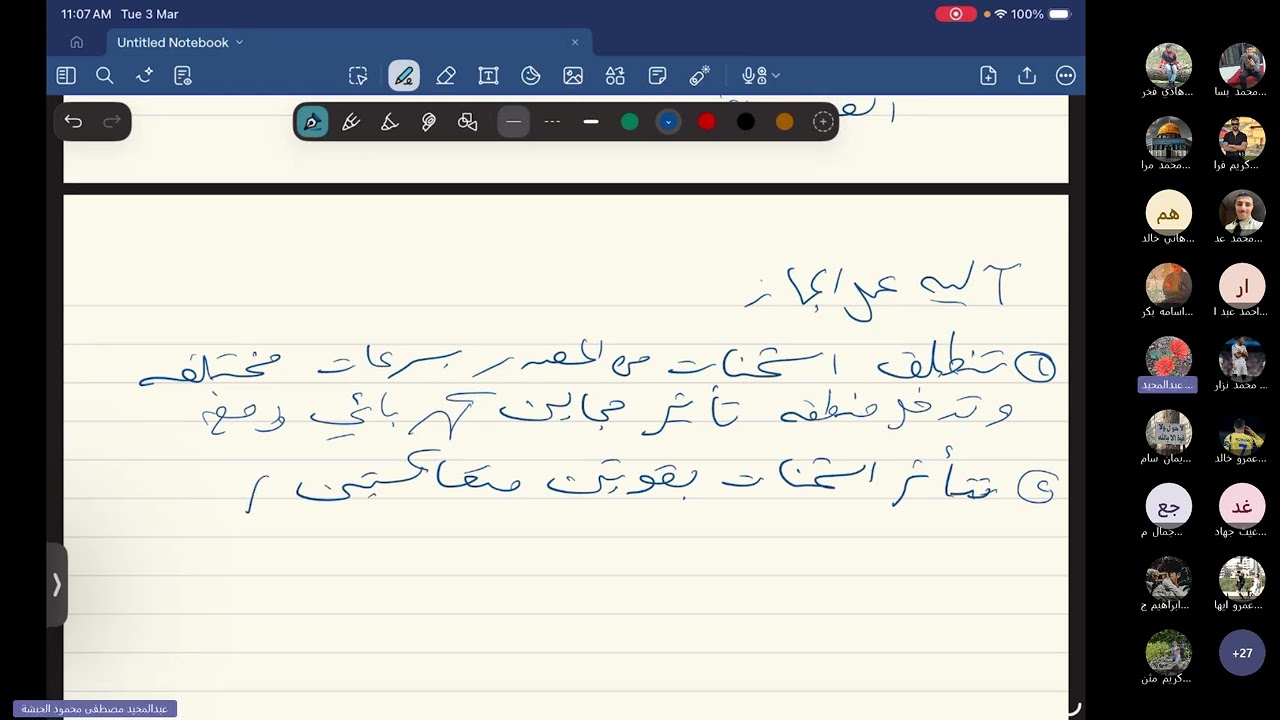 11:07 AM Tue 3 Mar
100%
Untitled Notebook
آلية عمل الجهاز
① تنطلق الشحنات من المصدر بسرعات مختلفه
و تدخل منطقه تأثير مجالين كهربائي و مغ
② تتأثر الشحنات بقوتين متعاكستين
هادي فخر...
محمد بسا...
محمد مرا...
كريم فرا...
هم
هاني خالد...
محمد عد...
اسامه بكر...
ار
احمد عبد ا...
عبدالمجيد...
محمد نزار...
يمان سام...
عمرو خالد...
جع
جمال م...
غد
غيث جهاد...
ابراهيم ج...
عمرو ايها...
كريم مثن...
+27
عبدالمجيد مصطفى محمود الحبشة